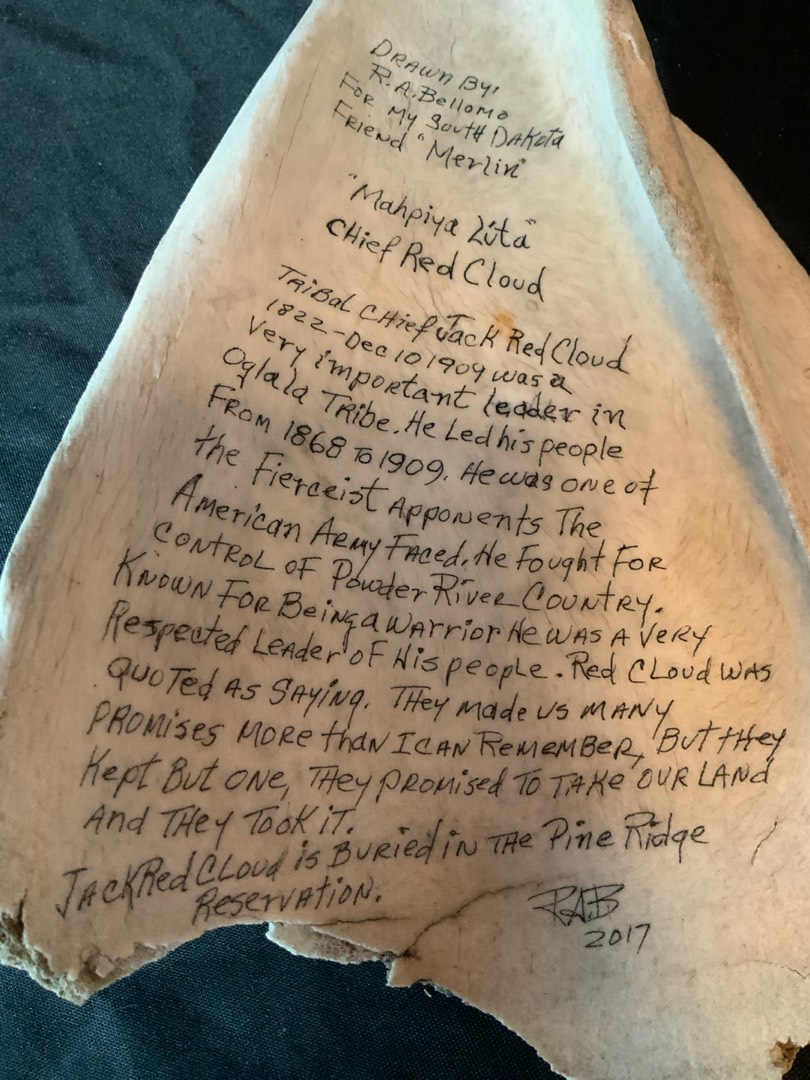 DRAWN BY:
R.A.Bellomo
FOR MY SOUTH DAKOTA
FRIEND "Merlin"
"Mahpiya Lúta"
CHIEF Red Cloud
TRIBAL CHIEF JACK Red Cloud
1822-Dec 10 1909 was a
Very important leader in
Oglala TRIBE. He Led his people
FROM 1868 TO 1909. He was one of
the Fierceist Apponents The
American ARMY FACED. He Fought FOR
CONTROL OF Powder River COUNTRY.
KNOWN FOR Being a WARRIOR He WAS A VERY
Respected LEADER OF His people. Red CLOUD WAS
QUOTED AS SAYING. THEY made us MANY
PROMISES MORE than I CAN REMEMBER, BUT tHEY
Kept But one, THEY PROMISED TO TAKE OUR LAND
And THEY TOOK IT.
JACK Red CLOUD is BURied in THE Pine Ridge
Reservation.
RAB
2017